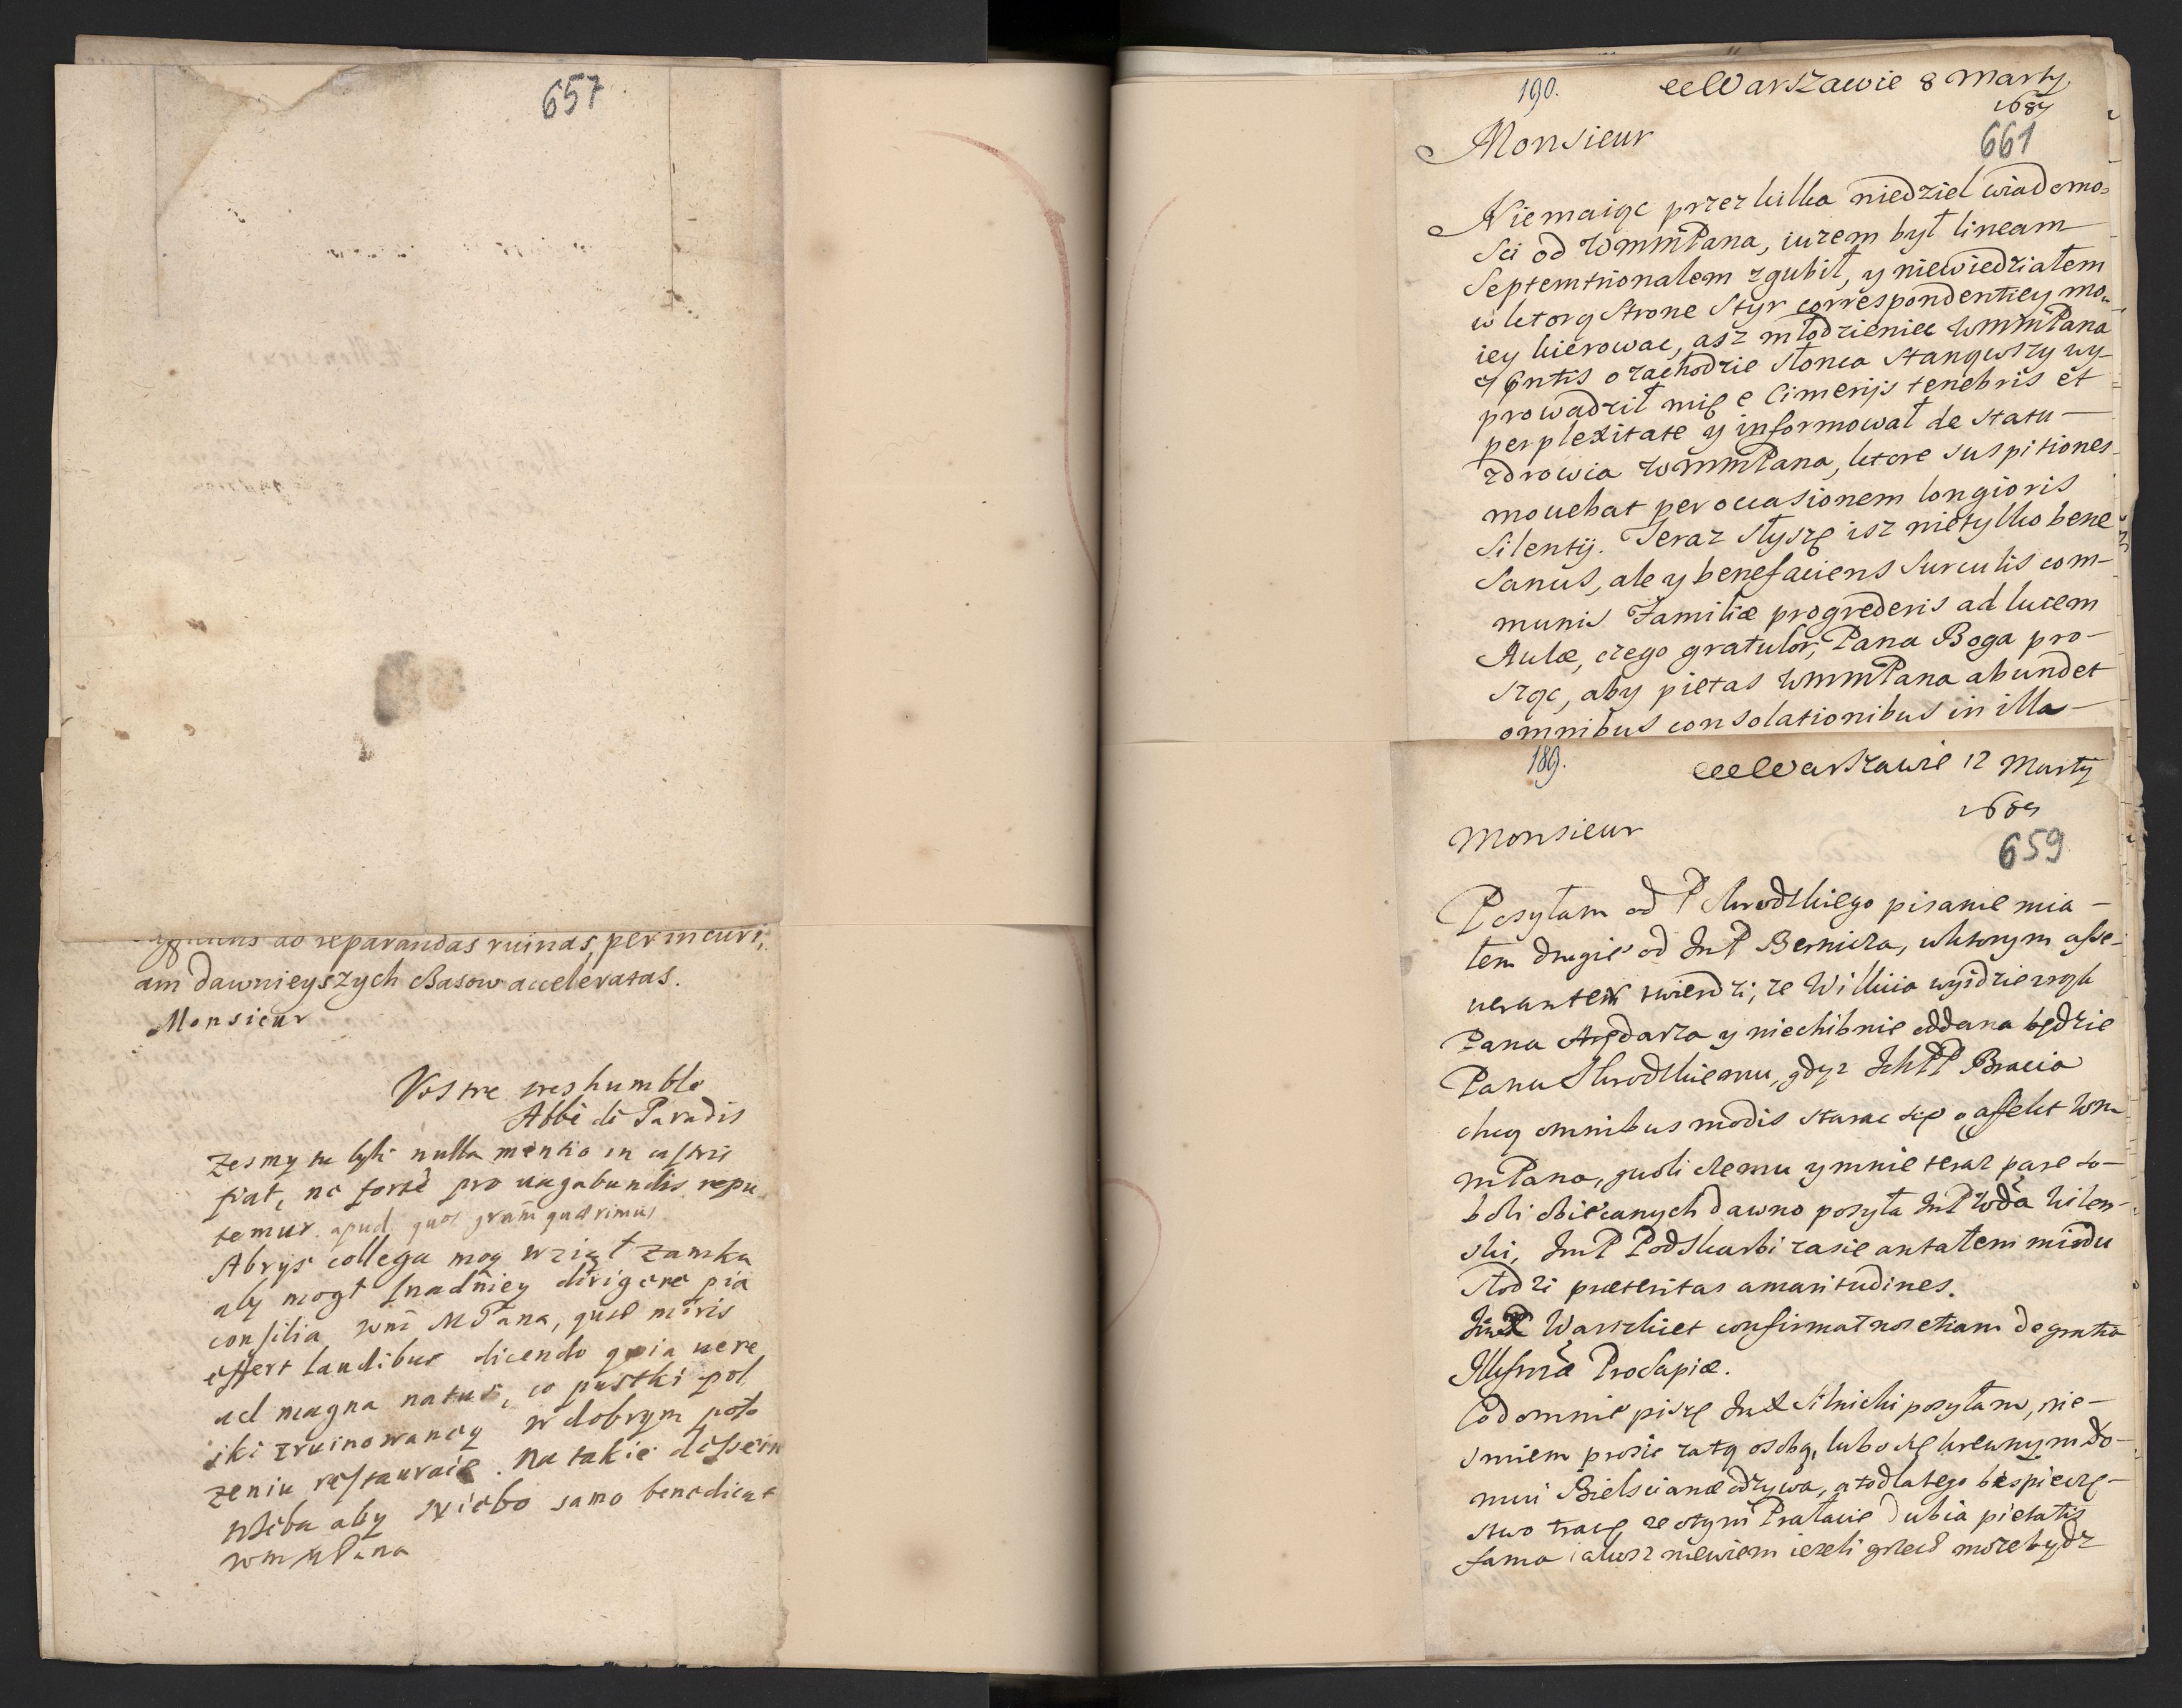 657
ad reparandas ruinas, per incuri,
am dawnieyszych Basow acceleratas.
Monsieur
Vostre tres humble
Abbé de Paradis
Zesmy tu byli nulla mentio in castris
fiat, ne forte pro uagabundis repu
temur apud quos gram̃ quaerimus
Abrys collega moy wziął zamku
aby mogł snadniey dirigere pia
consilia wm̃ MPana, quae miris
effert laudibus dicendo quia uere
ad magna natus, co pustki pol
ski zruinowaney w dobrym poło
zeniu restauraie. Na takie dessein
trzeba aby Niebo samo benedicat
wmMPana
190.
W Warszawie 8 Marty
1684
661
Monsieur
Niemaiąc przez kilka niedziel wiadomo-
sci od WmmPana, iuzem był lineam
Septemtrionalem zgubił, y niewiedziałem
w ktorą Strone Styr correspondentiey mo-
iey kierowac, asz młodzieniec WmmPana
7 Cntis o zachodzie słonca stanąwszy wy-
prowadził mię e Cimerijs tenebris et
perplexitate y informował de statu
zdrowia WmmPana, ktore suspitiones
mouebat per occasionem longioris
silentij. Teraz słyszę isz nietylko bene
Sanus, ale y benefaciens surculis com-
munis Familiæ progrederis ad lucem
Aulæ, czego gratulor, Pana Boga pro-
sząc, aby pietas WmmPana abundet
omnibus consolationibus in illa
189.
W Warszawie 12 Marty
1684
659
Monsieur
Posyłam od P Skrodzkiego pisanie mia-
łem drugie od JmP Berniera, wktorym asse-
ueranter twierdzi, ze Wilkiia wyidzie z rąk
Pana Arędarza y niechibnie oddana będzie
Panu Skrodzkiemu, gdyz IchPP Bracia
chcą omnibus modis starac się o affekt Wm
mPana, gwoli czemu y mnie teraz parę so-
boli obiecanych dawno posyła JmP Wda Wilen-
ski, JmP Podskarbi zasie antałem miodu
słodzi præteritas amaritudines.
JmX Warszkiet confirmat nos etiam de gratia
Illusmæ Prosapiæ.
Co do mnie piszę JmX Silnicki posyłam, nie-
smiem prosic za tą osobą, lubo się krewnym do-
mui Bielscianæ odzywa, a to dlatego bespiecze-
stwo tracę, ze o tym Prałacie dubia pietatis
fama iakosz niewiem iezeli grzech może bydz